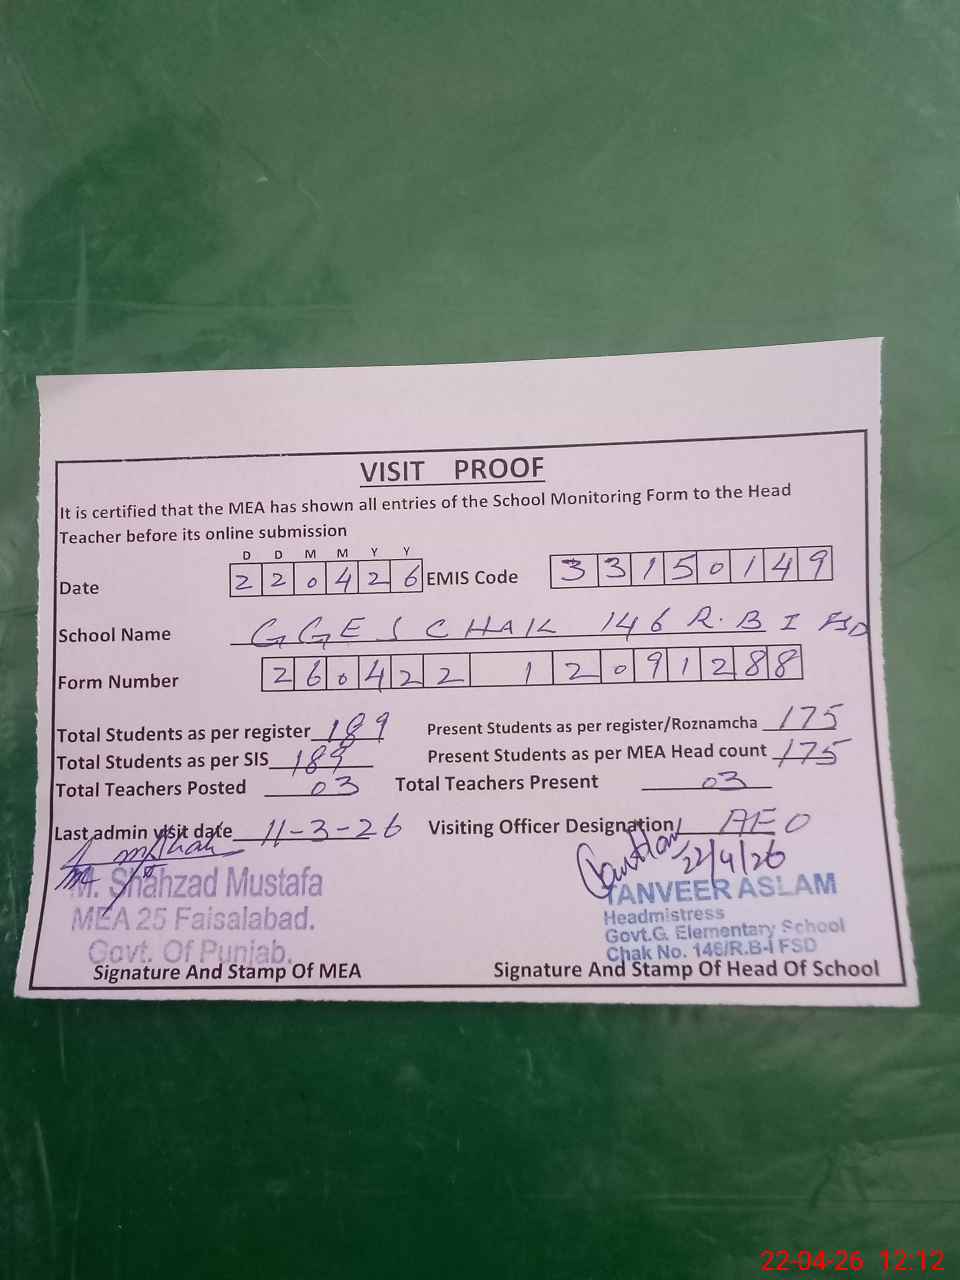 VISIT PROOF
It is certified that the MEA has shown all entries of the School Monitoring Form to the Head
Teacher before its online submission
D D M M Y Y
Date 2 2 0 4 2 6 EMIS Code 3 3 1 5 0 1 4 9
School Name GGES CHAK 146 R.B I FSD
Form Number 2 6 0 4 2 2 2 1 2 0 9 1 2 8 8
Total Students as per register 189 Present Students as per register/Roznamcha 175
Total Students as per SIS 189 Present Students as per MEA Head count 175
Total Teachers Posted 03 Total Teachers Present 03
Last admin visit date 11-3-26 Visiting Officer Designation AEO
22/4/26
M. Shahzad Mustafa
MEA 25 Faisalabad.
Govt. Of Punjab.
Signature And Stamp Of MEA
TANVEER ASLAM
Headmistress
Govt.G. Elementary School
Chak No. 146/R.B-I FSD
Signature And Stamp Of Head Of School
22-04-26 12:12